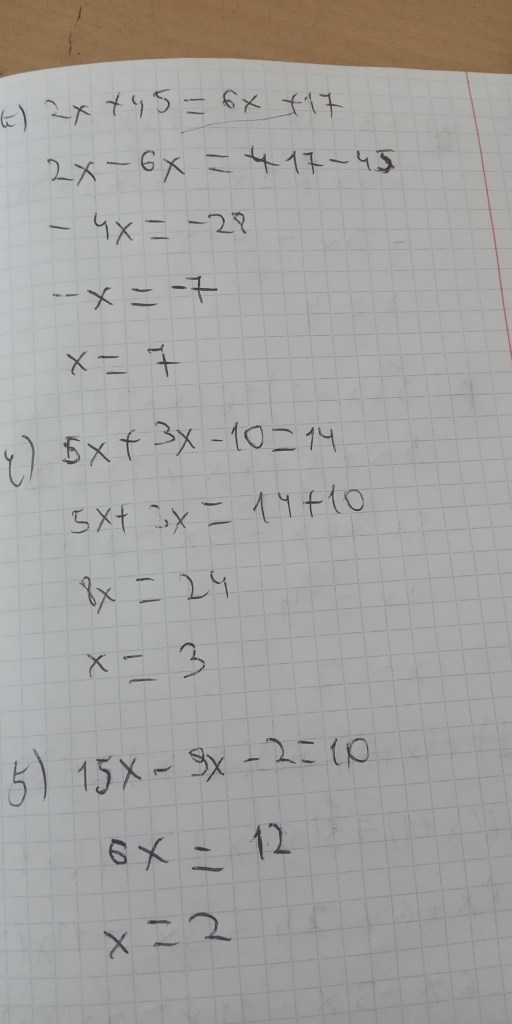 t) 2x + 45 = 6x + 17
2x - 6x = + 17 - 45
- 4x = -28
- x = -7
x = 7
4) 5x + 3x - 10 = 14
5x + 3x = 14 + 10
8x = 24
x = 3
5) 15x - 9x - 2 = 10
6x = 12
x = 2